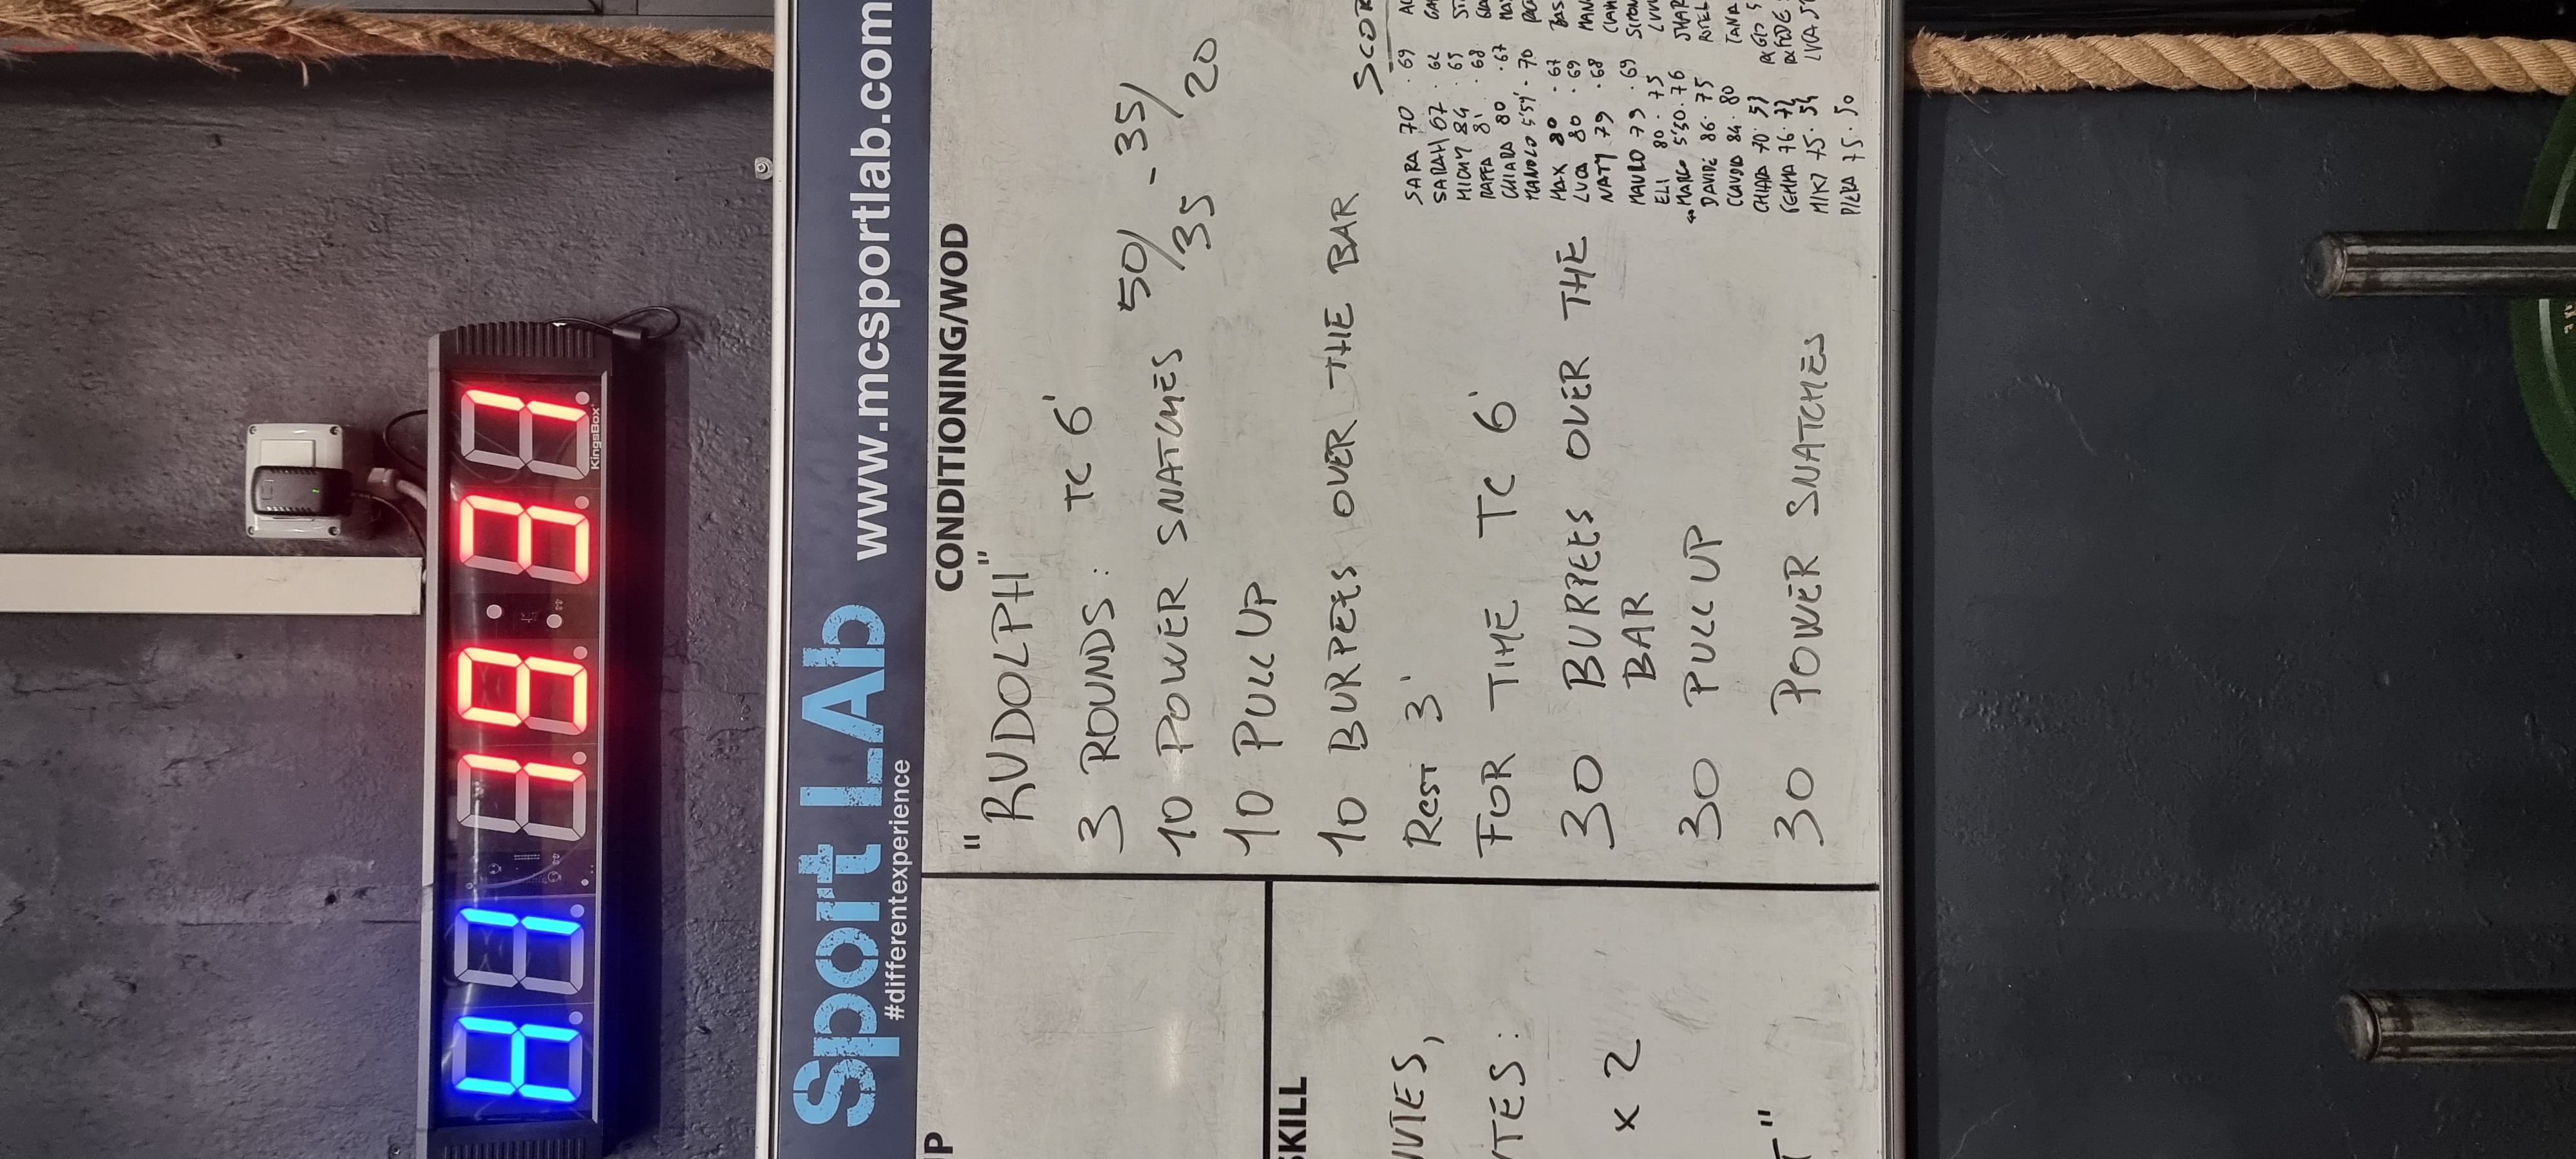 H1 19:31
KingsBox
Sport LAb www.mcsportlab.com
#differentexperience
CONDITIONING/WOD
"RUDOLPH"
3 ROUNDS: TC 6'
10 POWER SNATCHES 50/35 - 35/20
10 PULL UP
10 BURPEES OVER THE BAR
REST 3'
FOR TIME TC 6'
30 BURPEES OVER THE
BAR
30 PULL UP
30 POWER SNATCHES
SARA 70 . 69
SARAH 67 . 62
MICHY 84 . 65
RAFFA 81 . 68
CHIARA 80 . 67
MANOLO 5'59' - 70
MAX 80 . 67
LUCA 80 . 69
NATY 79 . 68
MAURO 79 . 69
ELI 80 . 75
MARCO 5'30 . 76
DAVIDE 86 . 75
CLAUDIA 84 . 80
CHIARA 70 . 53
GEMMA 76 . 72
MIKI 75 . 54
PIERA 75 . 50
SKILL
x 2